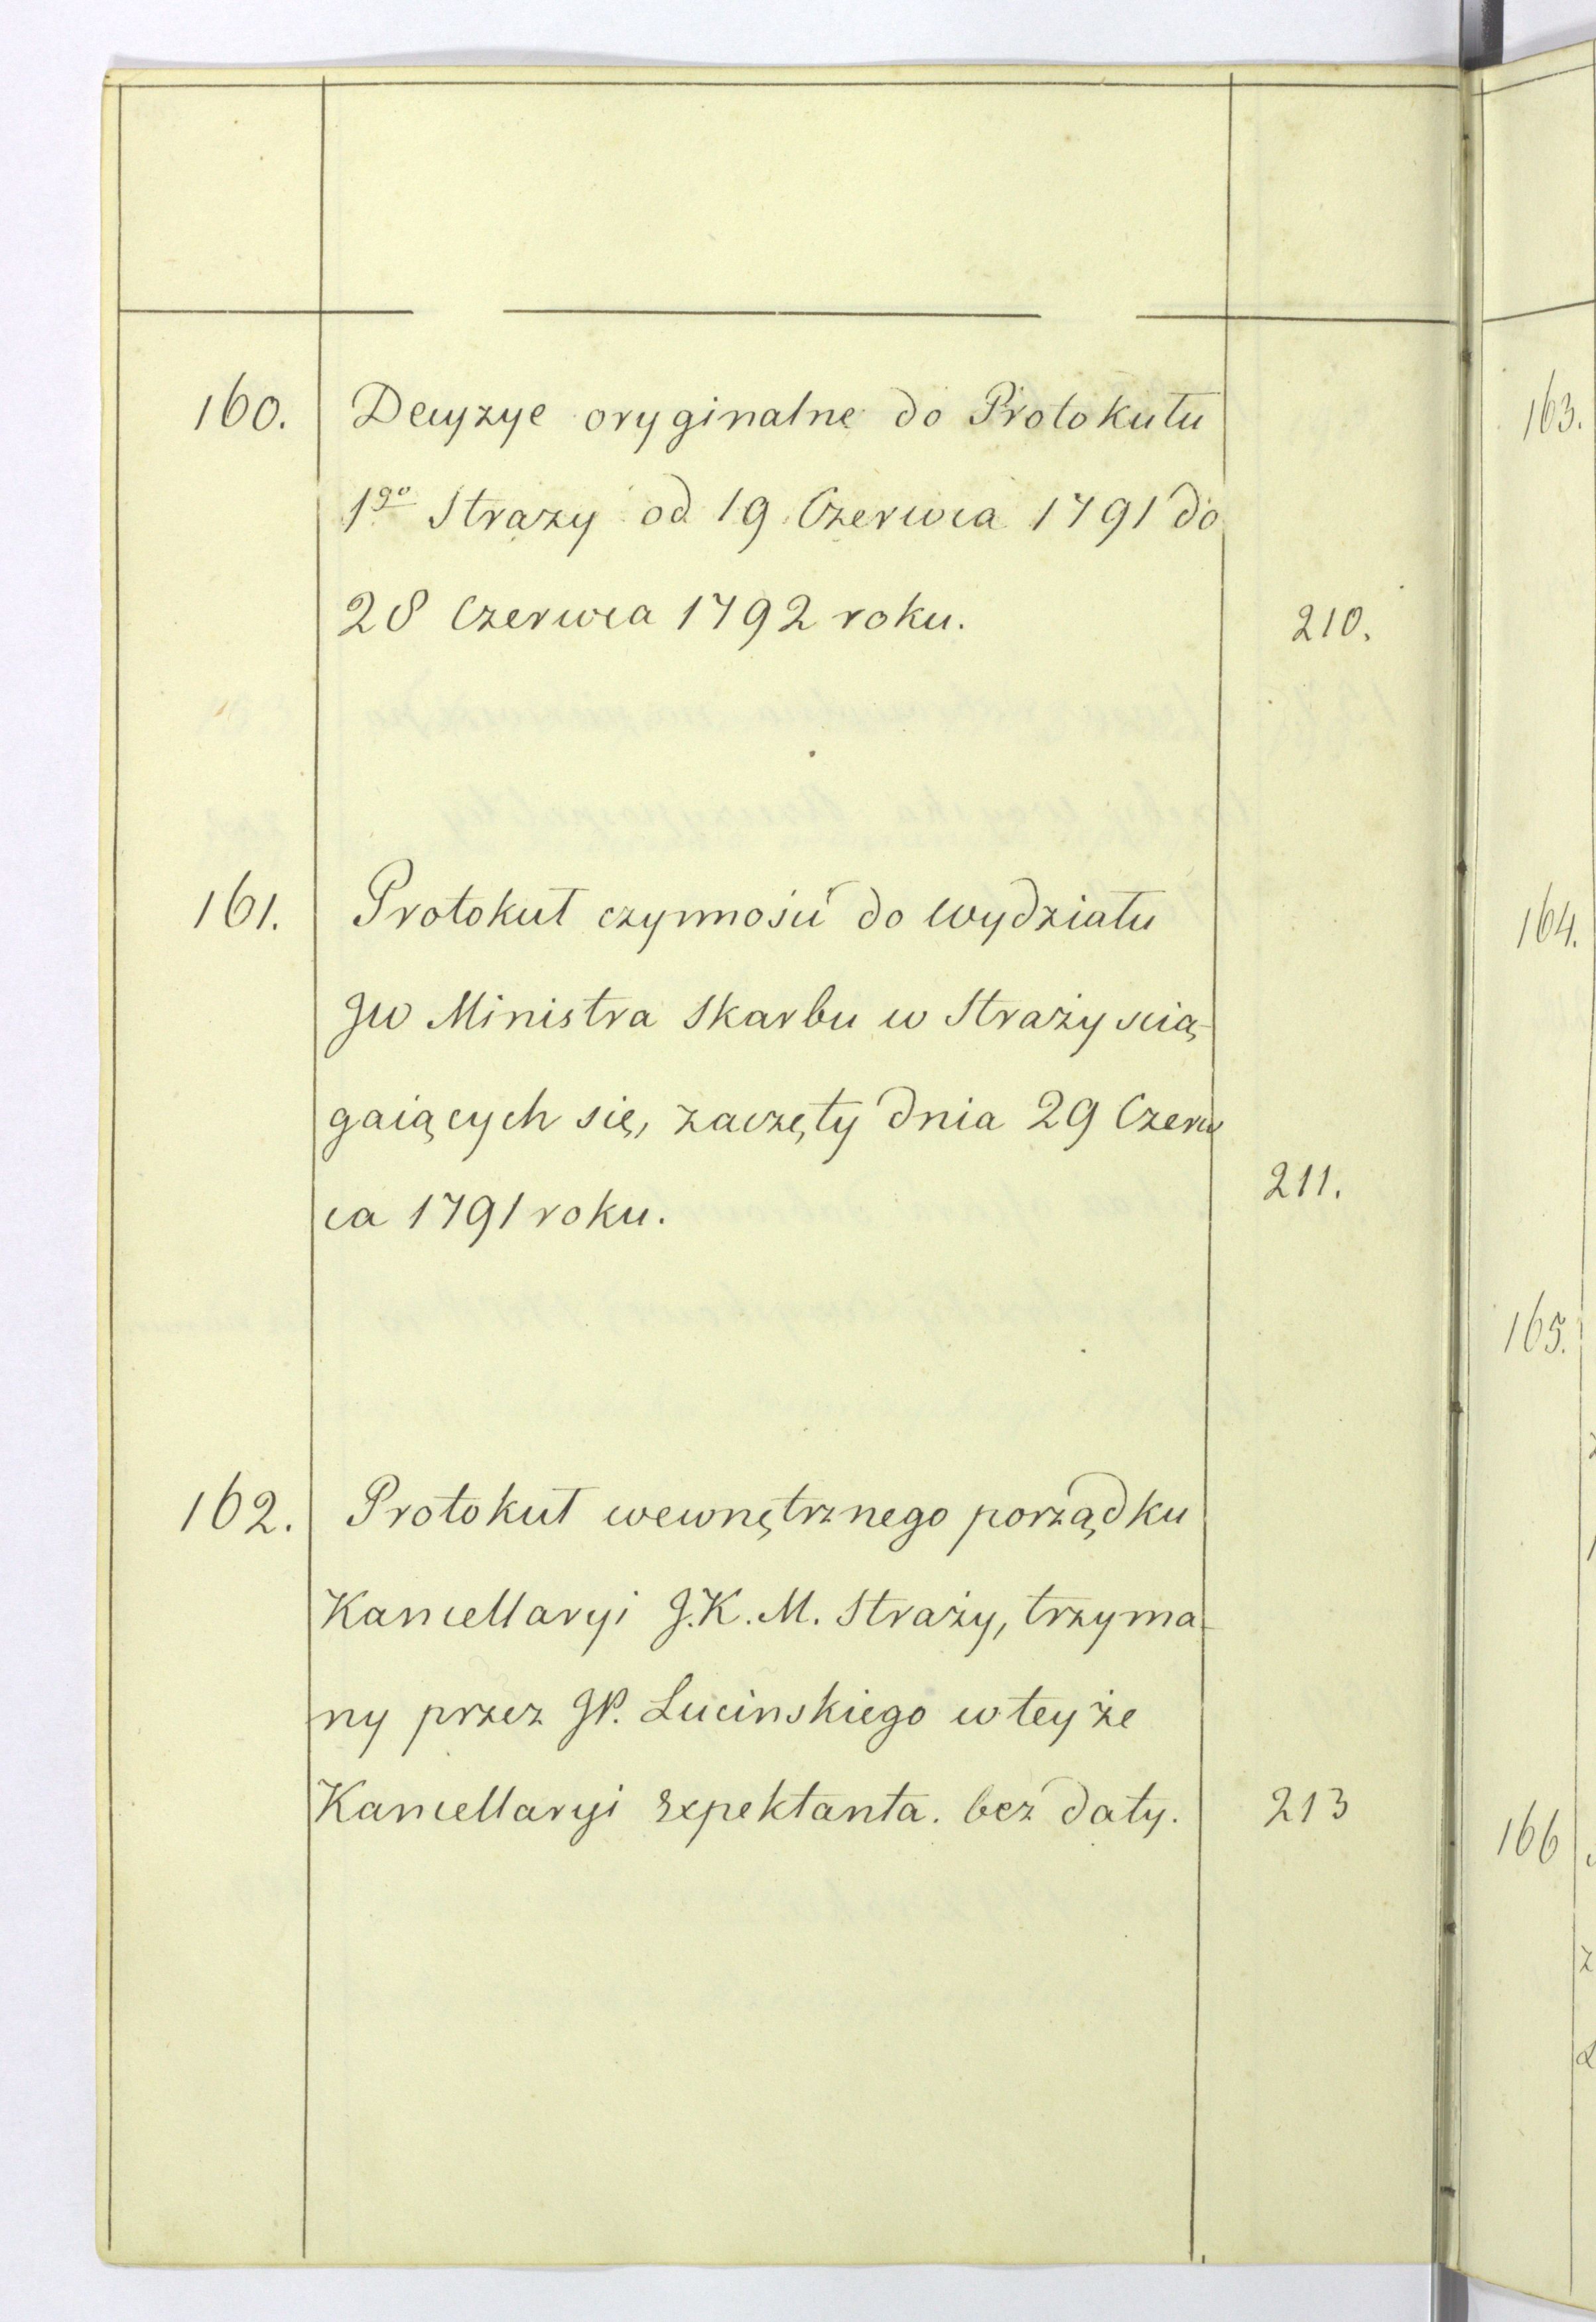 160. Decyzye oryginalne do Protokułu
1go Strazy od 19 Czerwca 1791 do
28 Czerwca 1792 roku. 210.
161. Protokuł czynności do Wydziału
JW Ministra Skarbu w Straży ścią-
gaiących się, zaczęty dnia 29 Czerw
ca 1791 roku. 211.
162. Protokuł wewnętrznego porządku
Kancellaryi J.K.M. Straży, trzyma-
ny przez JP. Lucinskiego w teyże
Kancellaryi Expektanta. bez daty. 213
163.
164.
165.
166